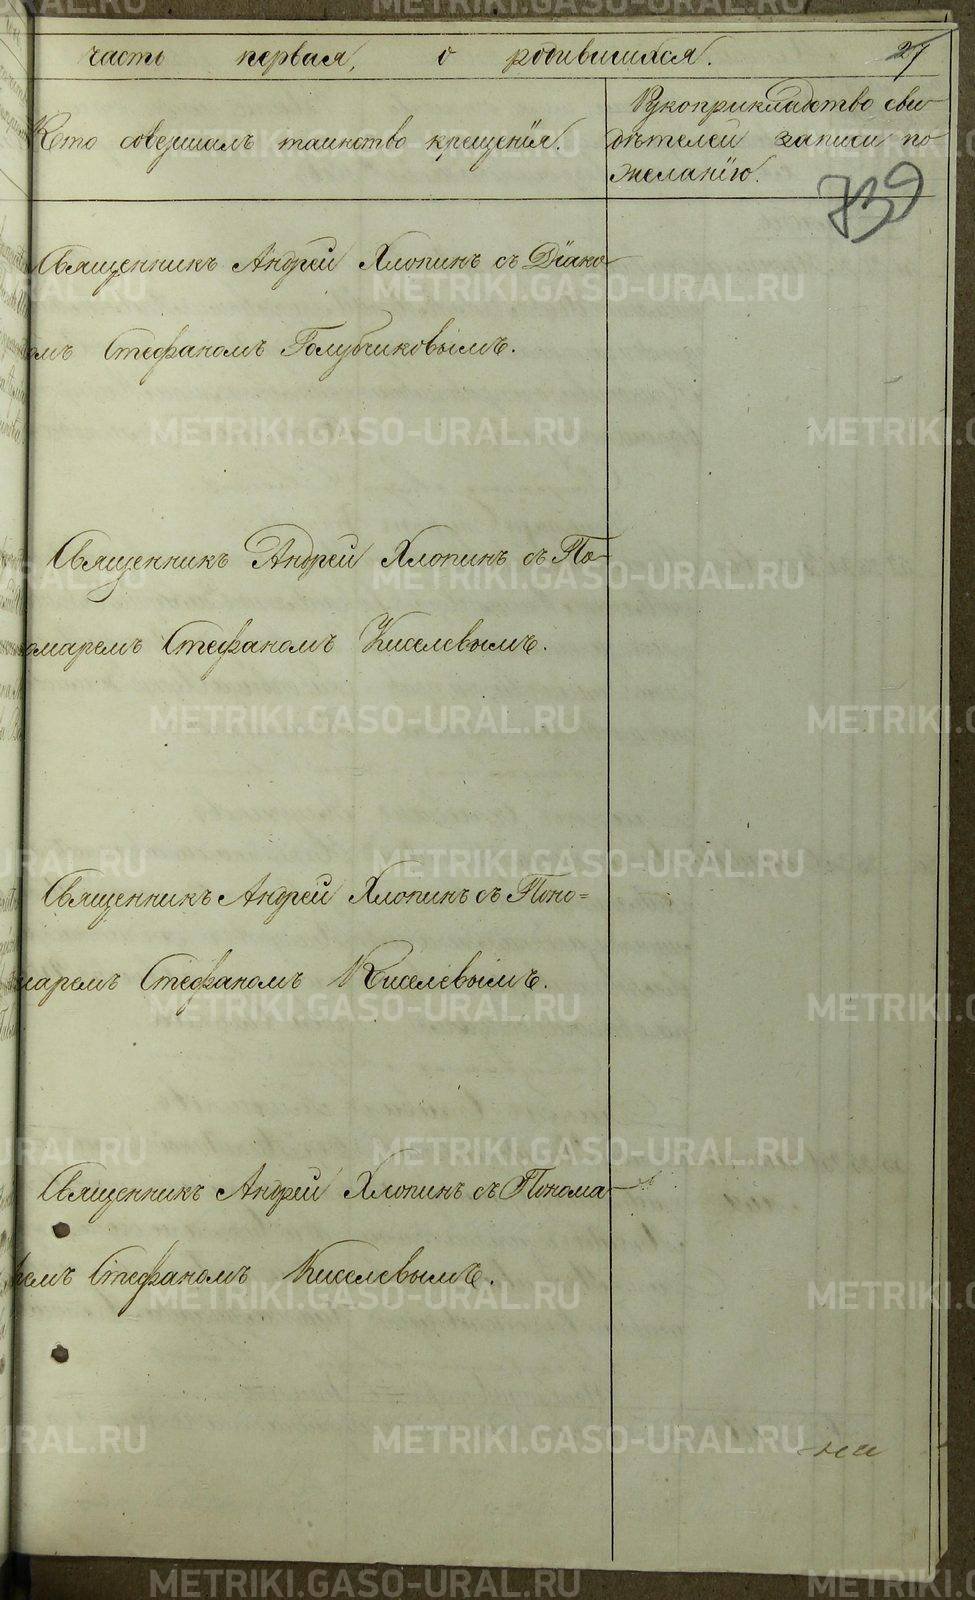 часть первая, о родившихся. 27
Кто совершалъ таинство крещенія.
Рукоприкладство сви-
дѣтелей записи по
желанію.
739
Священникъ Андрей Хлопинъ съ Діако-
омъ Стефаномъ Голубчиковымъ.
Священникъ Андрей Хлопинъ съ По-
омаремъ Стефаномъ Киселевымъ.
Священникъ Андрей Хлопинъ съ Поно=
маремъ Стефаномъ Киселевымъ.
Священникъ Андрей Хлопинъ съ Понома-
ремъ Стефаномъ Киселевымъ.
METRIKI.GASO-URAL.RU